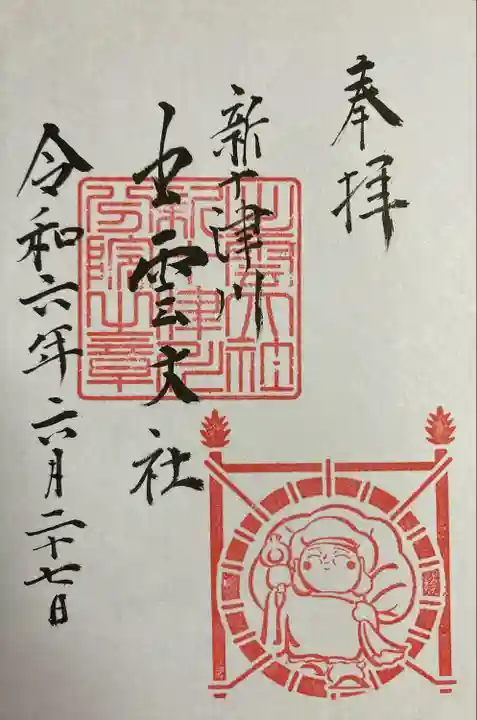 奉拝
新十津川
出雲大社
令和六年六月二十七日
出雲大社
新十津川
分院之章